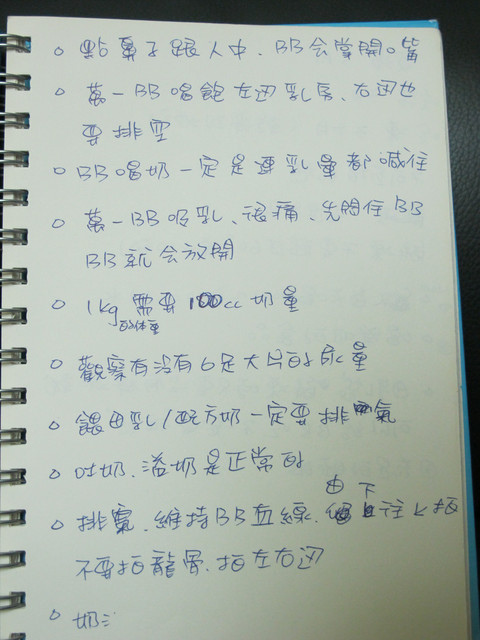 點鼻子跟人中、BB会掌開嘴
萬一BB喝飽左边乳房、右边也
要排空
BB喝奶一定是連乳暈都喊住
萬一BB吸乳、很痛、先関住BB
BB就会放開
1kg需要100cc奶量
的体重
觀察有沒有6足大片的尿量
餵母乳/配方奶一定要排氣
吐奶、溢奶是正常的
排氣、維持BB直線、由下往上拍
不要拍龍骨、拍左右边
奶